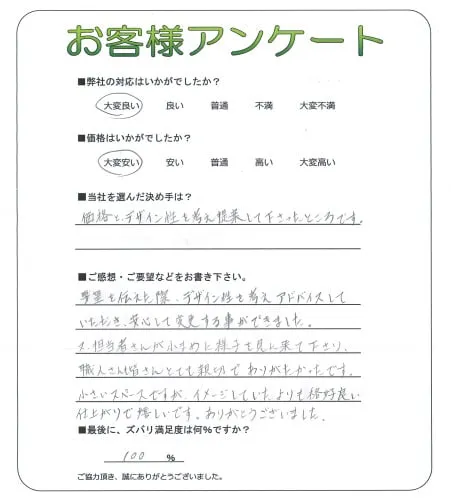 お客様アンケート
■弊社の対応はいかがでしたか？
大変良い 良い 普通 不満 大変不満
■価格はいかがでしたか？
大変安い 安い 普通 高い 大変高い
■当社を選んだ決め手は？
価格と、デザイン性も考え提案して下さったところです。
■ご感想・ご要望などをお書き下さい。
要望を伝えた際、デザイン性も考えアドバイスして
いただき、安心して変更する事ができました。
又、担当者さんが小まめに様子を見に来て下さり、
職人さん皆さんとても親切でありがたかったです。
小さいスペースですが、イメージしていたよりも格好良い
仕上がりで嬉しいです。ありがとうございました。
■最後に、ズバリ満足度は何%ですか？
100 %
ご協力頂き、誠にありがとうございました。